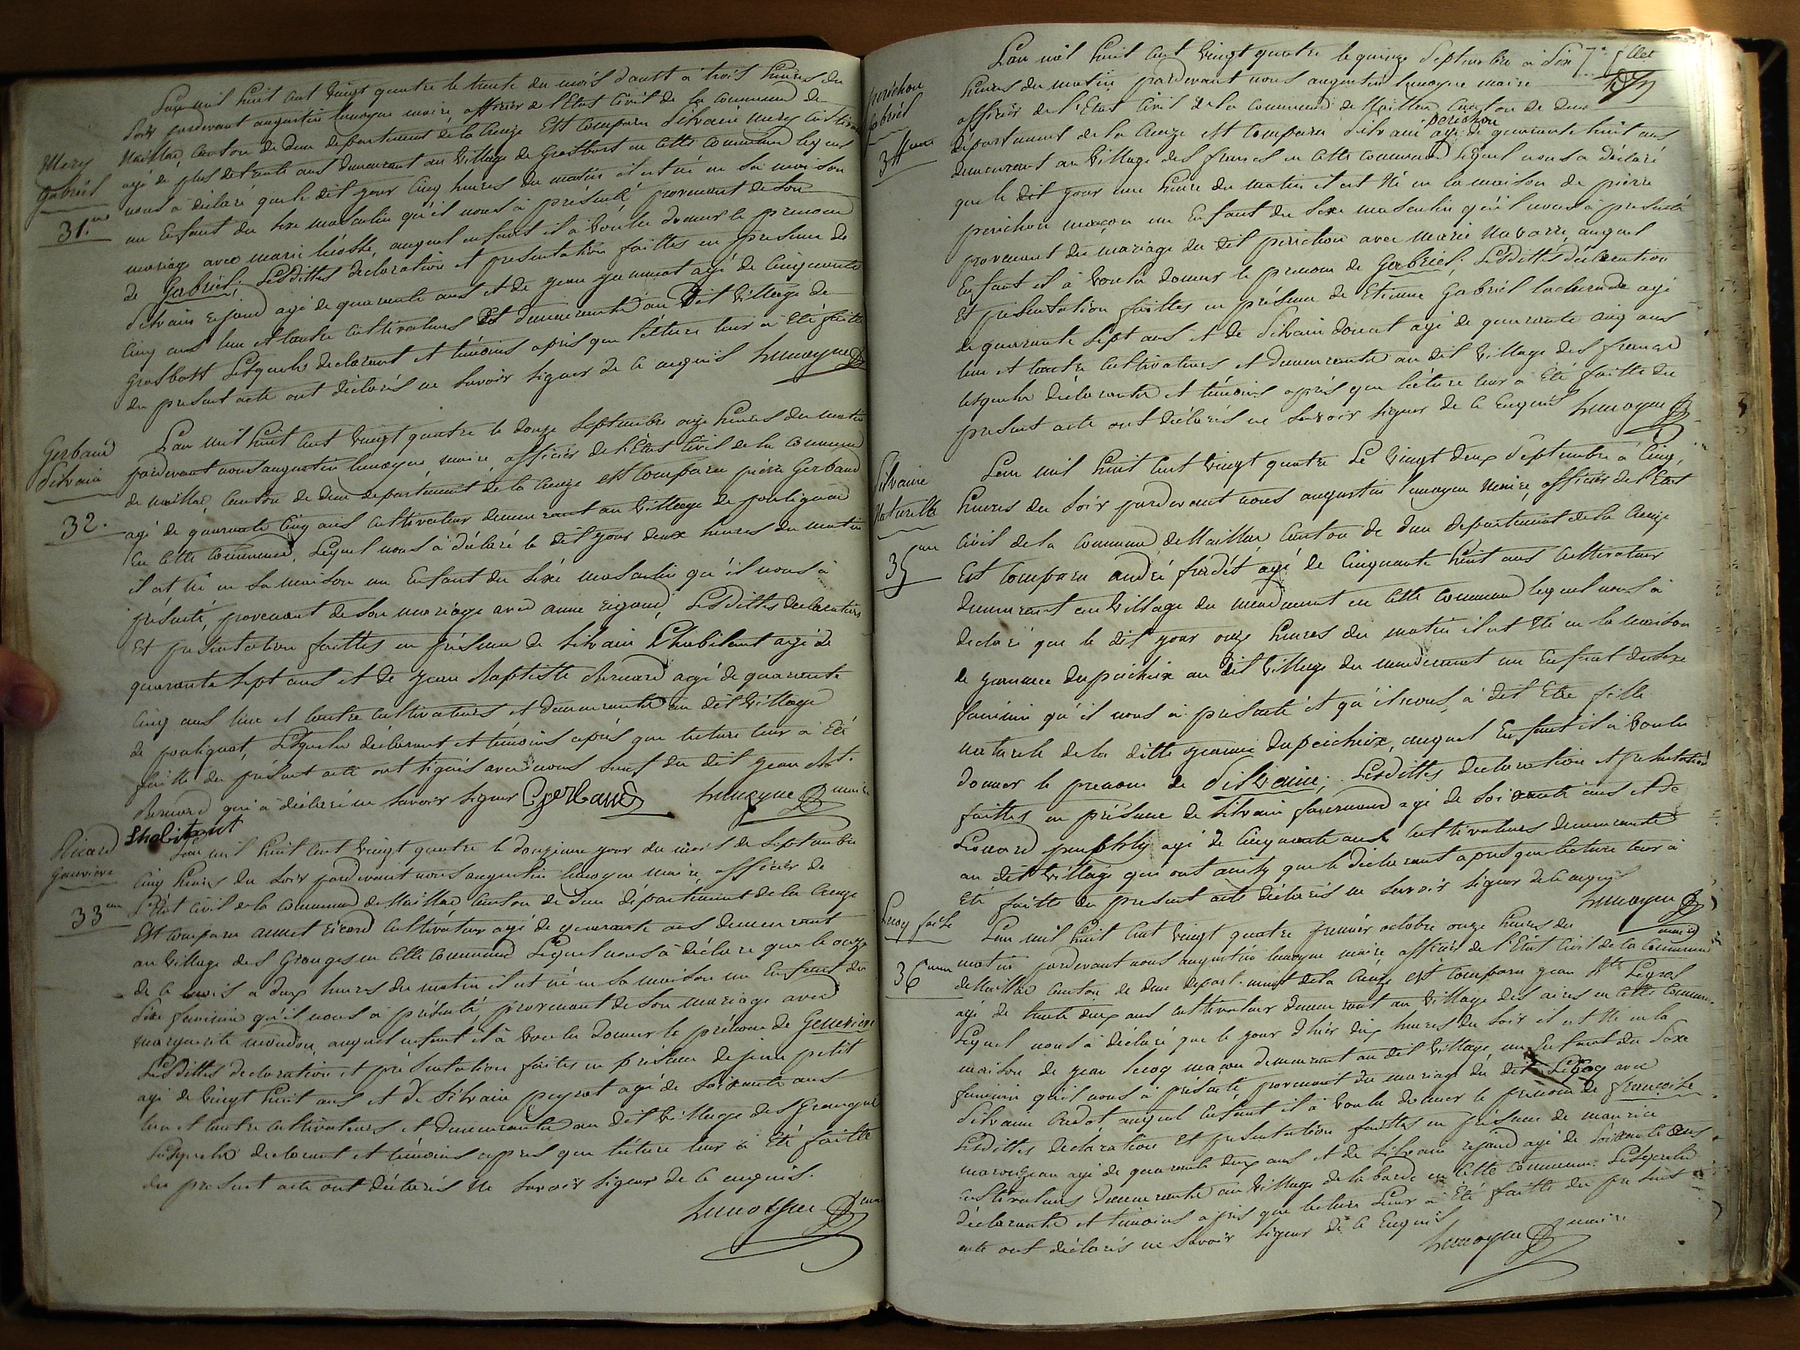 Mery
Gabriël
31.me
L'an mil huit cent vingt quatre le trente du mois d'aoust à trois heures du
soir pardevant augustin lemoyne maire officier de l'Etat Civil de la commune de
Maillac canton de dun departement de la Creuze Est comparu Silvain mery cultivateur
agé de plus de trente ans demeurant au village de Grosbost en cette commune lequel
nous à déclaré que le dit jour cinq heures du matin il est né en sa maison
un Enfant du sexe masculin qu'il nous à présenté provenant de son
mariage avec marie auquel enfant il à voulu donner le prenom
de Gabriel; Lesdittes declaration et presentation faittes en presence de
Silvain agé de quarante ans et de jean agé de cinquante
cinq ans l'un et l'autre cultivateurs Et demeurants au Dit village de
Grosbost Lesquels declarant et témoins apres que lécture leur à Eté faitte
du present acte ont déclarés ne savoir signer de ce enquis Lemoyne
Gerbaud
Silvain
32.
L'an mil huit cent vingt quatre le douze septembre onze heures du matin
pardevant nous augustin lemoyne, maire, officier de l'Etat Civil de la commune
de maillac, canton de dun departement de la Creuze est comparu pierre Gerbaud
agé de quarante cinq ans cultivateur demeurant au village de poulignat
En cette commune, Lequel nous à déclaré le dit jour deux heures du matin
il est né en sa maison un Enfant du séxe masculin qu'il nous à
présenté, provenant de son mariage avec anne rigaud, Lesdittes declaration
Et presentation faittes en présence de Silvain L'habitant agé de
quarante sept ans et de jean Baptiste Bernard agé de quarante
cinq ans l'un et l'autre cultivateurs et demeurants au dit village
de poulignat, Lesquels déclarant et témoins aprés que lecture leur à Eté
faitte du présent acte ont signés avec nous sauf du dit jean Bte.
Bernard qui à déclaré ne savoir signer Gerbaud Lemoyne maire
Lhabitant
Ricard
genevieve
33me
L'an mil huit cent vingt quatre le douzieme jour du mois de Septembre
cinq heures du soir pardevant nous augustin lemoyne maire, officier de
L'Etat Civil de la commune de Maillac canton de Dun département de la Creuze
Est comparu annet ricard cultivateur agé de quarante ans demeurant
au village des Granges en cette commune Lequel nous à déclaré que le onze
de ce mois a deux heures du matin il est né en sa maison un Enfant du
séxe feminin qu'il nous a présenté, provenant de son mariage avec
marguerite, auquel enfant il à voulu donner le prénom de Genevieve
Lesdittes declaration et présentation faites en presence de petit
agé de vingt huit ans et de Silvain peyrot agé de soixante ans
l'un et l'autre cultivateurs et demeurants au dit village des Granges
Lesquels declarant et témoins apres que lécture leur à Eté faitte
du present acte ont déclarés ne savoir signer de ce enquis.
Lemoyne maire
perichon
Gabriël
34me
L'an mil huit cent vingt quatre le quinze Septembre à six
heures du matin pardevant nous augustin lemoyne maire
officier de l'Etat Civil de la commune de Maillac canton de dun
departement de la Creuze est comparu Silvain perichon agé de quarante huit ans
demeurant au village des en cette commune lequel nous a déclaré
que le dit jour une heure du matin il est Né en la maison de pierre
perichon maçon un Enfant du sexe masculin qu'il nous à présenté
provenant du mariage du dit perichon avec marie Navarre, auquel
Enfant il à voulu donner le prenom de Gabriel; Lesdittes déclaration
Et presentation faittes en présence de Etienne Gabriel agé
de quarante sept ans et de Silvain agé de quarante cinq ans
l'un et l'autre cultivateurs et demeurants au dit village des
Lesquels déclarants et témoins après que lécture leur à Eté faitte du
présent acte ont déclarés ne savoir signer de ce Enquis Lemoyne
Silvaine
Naturelle
35me
L'an mil huit cent vingt quatre Le vingt deux Septembre à cinq
heures du soir pardevant nous augustin lemoyne Maire officier de l'Etat
Civil de la commune de Maillac canton de dun departement de la Creuze
Est comparu andré agé de cinquante huit ans cultivateur
demeurant au village du en cette commune lequel nous à
declaré que le dit jour onze heures du matin il est Né en la maison
de jeanne au dit village du un Enfant du sexe
féminin qu'il nous à présenté et qu'il nous à dit Etre fille
naturelle de la ditte jeanne, auquel Enfant il à voulu
donner le prenom de Silvaine; Lesdittes declaration et presentation
faittes en présence de Silvain agé de soixante ans et de
Léonard agé de cinquante ans cultivateurs demeurants
au dit village qui ont ainsy que le déclarant apres que lecture leur à
Eté faitte du present acte déclarés ne savoir signer de ce enquis
Lemoyne maire
36me
L'an mil huit cent vingt quatre premier octobre onze heures du
matin pardevant nous augustin lemoyne maire officier de l'Etat Civil de la commune
de Maillac canton de dun departement de la Creuze est comparu jean Bte
agé de trente deux ans cultivateur demeurant au village des aires en cette commune
Lequel nous à déclaré que le jour d'hier dix heures du soir il est Né en la
maison de jean lecoq maçon demeurant au dit village un Enfant du Sexe
féminin qu'il nous à présenté, provenant du mariage du dit Lecoq avec
Silvaine auquel enfant il à voulu donner le prénom de françoise
Lesdittes déclaration Et présentation faittes en présence de maurice
agé de quarante deux ans et de Silvain agé de soixante ans
cultivateurs demeurants au village de la barde en cette commune. Lesquels
déclarants et témoins après que lecture leur à Eté faitte du présent
acte ont déclarés ne savoir signer de ce Enquis
Lemoyne maire